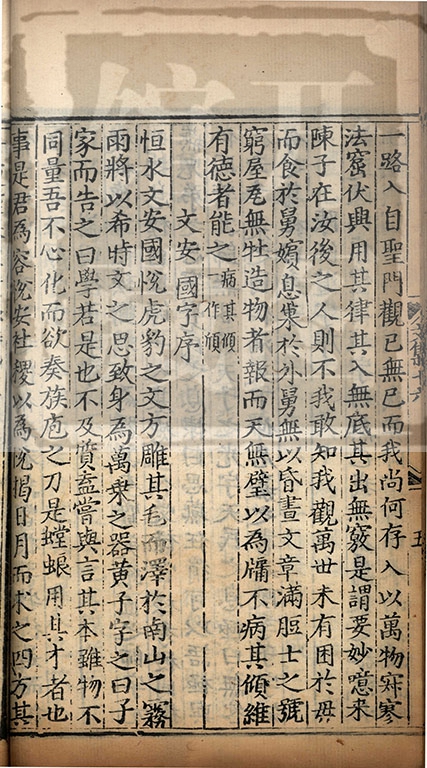 一路入自聖門觀已無已而我尚何存入以萬物寒
法窟伏興用其律其入無底其出無竅是謂要妙噫来
陳子在汝後之人則不我敢知我觀萬世未有困於毋
而食於舅嬪息巢於外舅無以昏晝文章滿脰士之號
窮屋瓦無牡造物者報而天無壁以為牖不病其傾維
有德者能之病其傾一作傾
文安國字序
恒水文安國恱虎豹之文方雕其毛而澤於南山之霧
雨將以希時文之思致身為萬乗之器黄子字之曰子
家而告之曰學若是也不及賁盍嘗與言其本雖物不
同量吾不心化而欲奏族庖之刀是螳蜋用其才者也
事是君為容恱安社稷以為恱揭日月而求之四方其
五